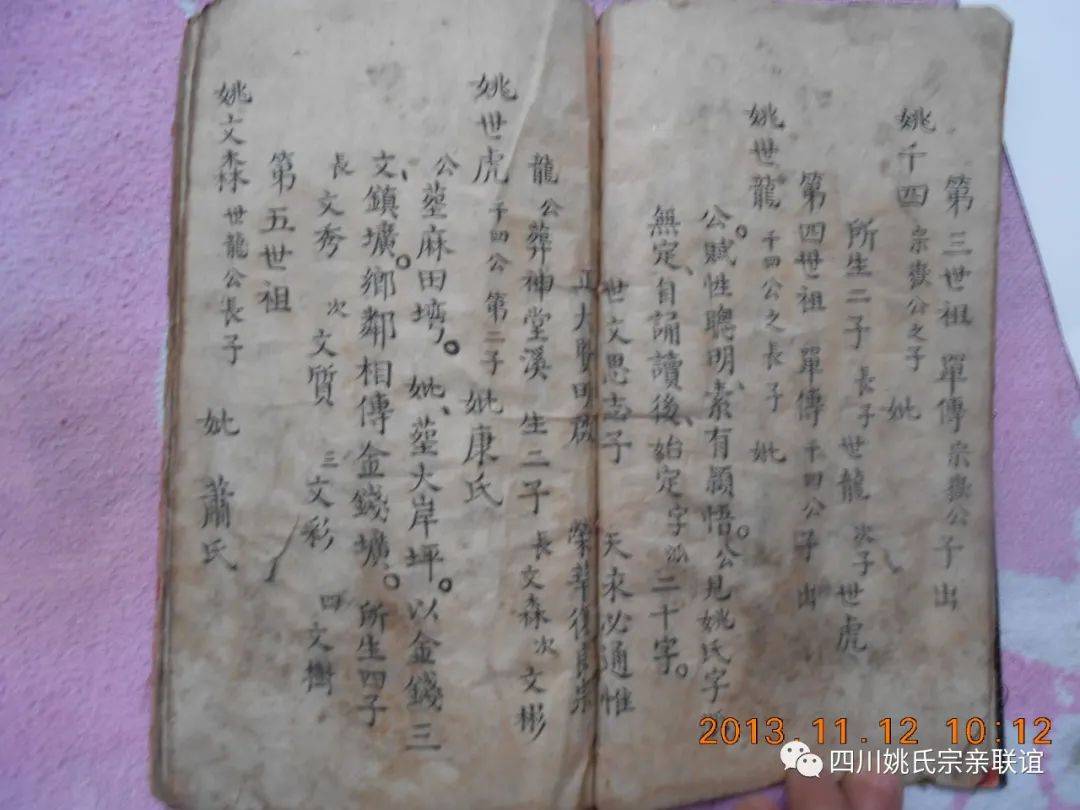 第三世祖 單傳 宗嶽公子出
姚千四 宗嶽公之子 妣
所生二子 長子世龍 次子世虎
第四世祖 單傳 千四公子出
姚世龍 千四公之長子 妣
公賦性聰明、素有穎悟。公見姚氏字
無定、自誦讀後、始定字派二十字。
世文思志子 天來必通惟
正大 明啟 榮華復
龍公葬神堂溪 生二子 長文森 次文彬
姚世虎 千四公第二子 妣康氏
公、塟麻田塆。妣、塟大岸坪。以金錢三
文、鎮壙。鄉鄰相傳金錢壙。所生四子
長文秀 次文質 三文彩 四文樹
第五世祖
姚文森 世龍公長子 妣 蕭氏
2013.11.12 10:12
四川姚氏宗亲联谊